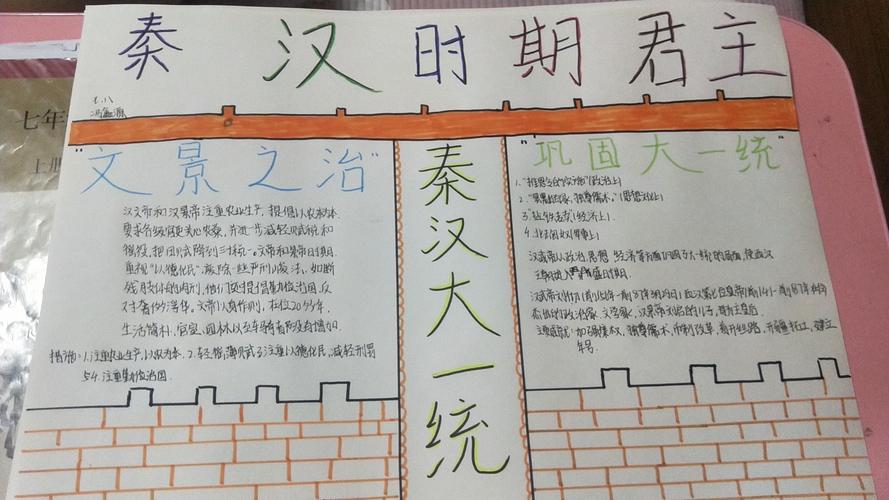 秦汉时期君主
七·八
七年
上册
"文景之治"
汉文帝和汉景帝注重农业生产,提倡以农为本.
要求各级官吏关心农桑,并进一步减轻赋税和
徭役,把田赋降到三十税一。文帝和景帝时期.
重视"以德化民"废除一些严刑峻法,如断
他们还提倡勤俭治国,反
对奢侈浮华。文帝以身作则,在位20多年.
生活简朴,宫室、园林以至车骑
措施:1.注重农业生产,以农为本.2.轻徭薄赋3.注重以德化民,减轻刑罚
4.注重勤俭治国.
秦汉大一统
"巩固大一统"
1."推恩令的实施"(政治上)
2."罢黜百家,独尊儒术."(思想上)
3.(经济上)
4.北击匈奴(军事上)
汉武帝从政治、思想、经济等方面巩固了大一统的局面,使西汉
王朝进入鼎盛时期.
汉武帝刘彻
政治家、文学家,汉景帝刘启的儿子,母为王皇后
主要成就:加强皇权、独尊儒术、币制改革、开辟丝路、开疆拓土、建立
年号.